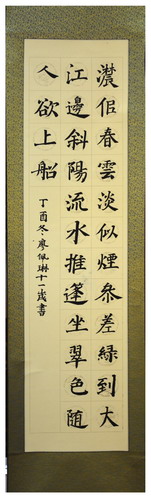 濃佀春雲淡似煙叅差綠到大
江邊斜陽流水推蓬坐翠色隨
人欲上船
丁酉冬廖佩琳十一歲書